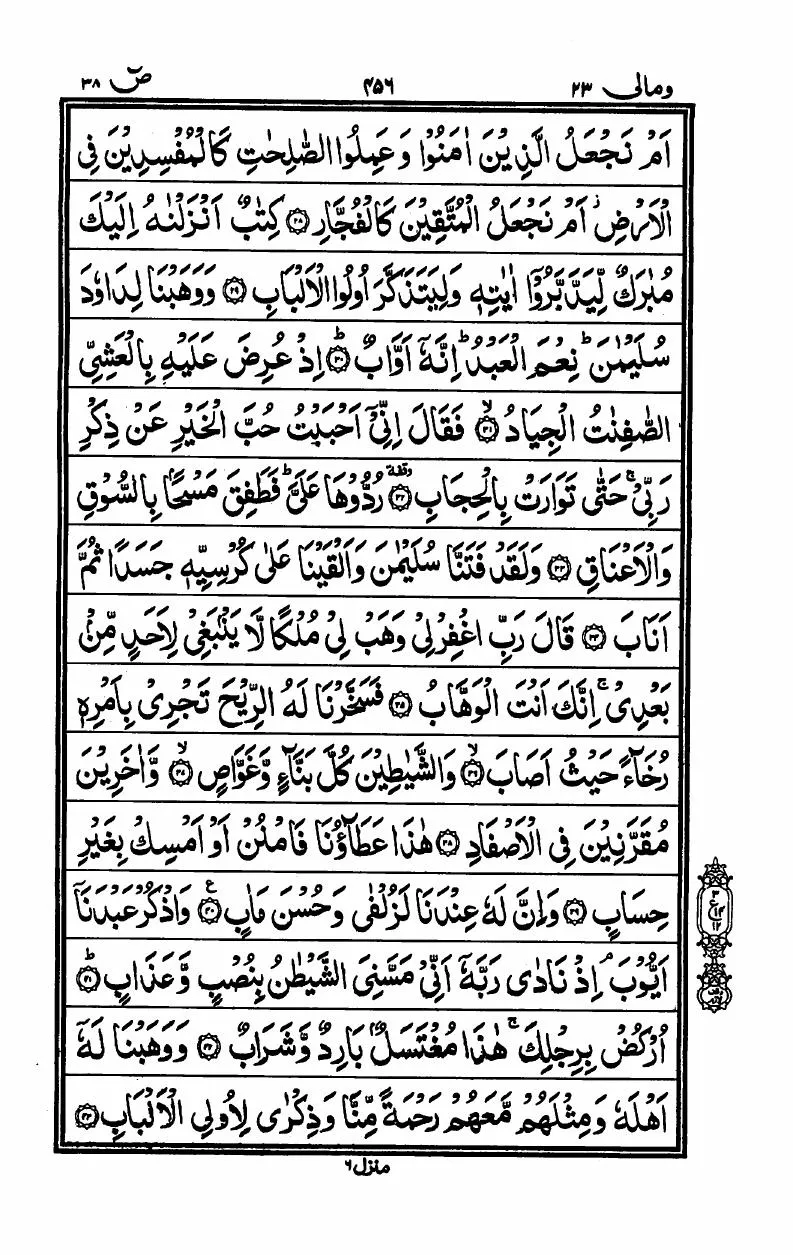 ومالی ۲۳ ۴۵۶ صۤ ۳۸
اَمۡ نَجۡعَلُ الَّذِیۡنَ اٰمَنُوۡا وَ عَمِلُوا الصّٰلِحٰتِ کَالۡمُفۡسِدِیۡنَ فِی
الۡاَرۡضِ ۫ اَمۡ نَجۡعَلُ الۡمُتَّقِیۡنَ کَالۡفُجَّارِ ﴿۲۸﴾ کِتٰبٌ اَنۡزَلۡنٰهُ اِلَیۡکَ
مُبٰرَکٌ لِّیَدَّبَّرُوۡۤا اٰیٰتِهٖ وَ لِیَتَذَکَّرَ اُولُوا الۡاَلۡبَابِ ﴿۲۹﴾ وَ وَهَبۡنَا لِدَاوٗدَ
سُلَیۡمٰنَ ؕ نِعۡمَ الۡعَبۡدُ ؕ اِنَّهٗۤ اَوَّابٌ ﴿ؕ۳۰﴾ اِذۡ عُرِضَ عَلَیۡهِ بِالۡعَشِیِّ
الصّٰفِنٰتُ الۡجِیَادُ ﴿ۙ۳۱﴾ فَقَالَ اِنِّیۡۤ اَحۡبَبۡتُ حُبَّ الۡخَیۡرِ عَنۡ ذِکۡرِ
رَبِّیۡ ۚ حَتّٰی تَوَارَتۡ بِالۡحِجَابِ ﴿۳۲﴾ وقفة رُدُّوۡهَا عَلَیَّ ؕ فَطَفِقَ مَسۡحًۢا بِالسُّوۡقِ
وَ الۡاَعۡنَاقِ ﴿۳۳﴾ وَ لَقَدۡ فَتَنَّا سُلَیۡمٰنَ وَ اَلۡقَیۡنَا عَلٰی کُرۡسِیِّهٖ جَسَدًا ثُمَّ
اَنَابَ ﴿۳۴﴾ قَالَ رَبِّ اغۡفِرۡ لِیۡ وَ هَبۡ لِیۡ مُلۡکًا لَّا یَنۡۢبَغِیۡ لِاَحَدٍ مِّنۡۢ
بَعۡدِیۡ ۚ اِنَّکَ اَنۡتَ الۡوَهَّابُ ﴿۳۵﴾ فَسَخَّرۡنَا لَهُ الرِّیۡحَ تَجۡرِیۡ بِاَمۡرِهٖ
رُخَآءً حَیۡثُ اَصَابَ ﴿ۙ۳۶﴾ وَ الشَّیٰطِیۡنَ کُلَّ بَنَّآءٍ وَّ غَوَّاصٍ ﴿ۙ۳۷﴾ وَّ اٰخَرِیۡنَ
مُقَرَّنِیۡنَ فِی الۡاَصۡفَادِ ﴿۳۸﴾ هٰذَا عَطَآؤُنَا فَامۡنُنۡ اَوۡ اَمۡسِکۡ بِغَیۡرِ
حِسَابٍ ﴿۳۹﴾ وَ اِنَّ لَهٗ عِنۡدَنَا لَزُلۡفٰی وَ حُسۡنَ مَاٰبٍ ﴿۴۰﴾ ع وَ اذۡکُرۡ عَبۡدَنَاۤ
اَیُّوۡبَ ۘ اِذۡ نَادٰی رَبَّهٗۤ اَنِّیۡ مَسَّنِیَ الشَّیۡطٰنُ بِنُصۡبٍ وَّ عَذَابٍ ﴿ؕ۴۱﴾
اُرۡکُضۡ بِرِجۡلِکَ ۚ هٰذَا مُغۡتَسَلٌۢ بَارِدٌ وَّ شَرَابٌ ﴿۴۲﴾ وَ وَهَبۡنَا لَهٗۤ
اَهۡلَهٗ وَ مِثۡلَهُمۡ مَّعَهُمۡ رَحۡمَةً مِّنَّا وَ ذِکۡرٰی لِاُولِی الۡاَلۡبَابِ ﴿۴۳﴾
منزل ۶